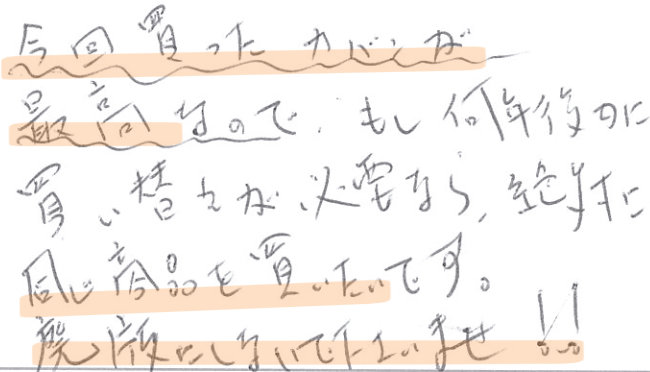 今回買ったカバンが
最高なので、もし何年後かに
買い替えが必要なら、絶対に
同じ商品を買いたいです。
廃版にしないで下さいませ!!